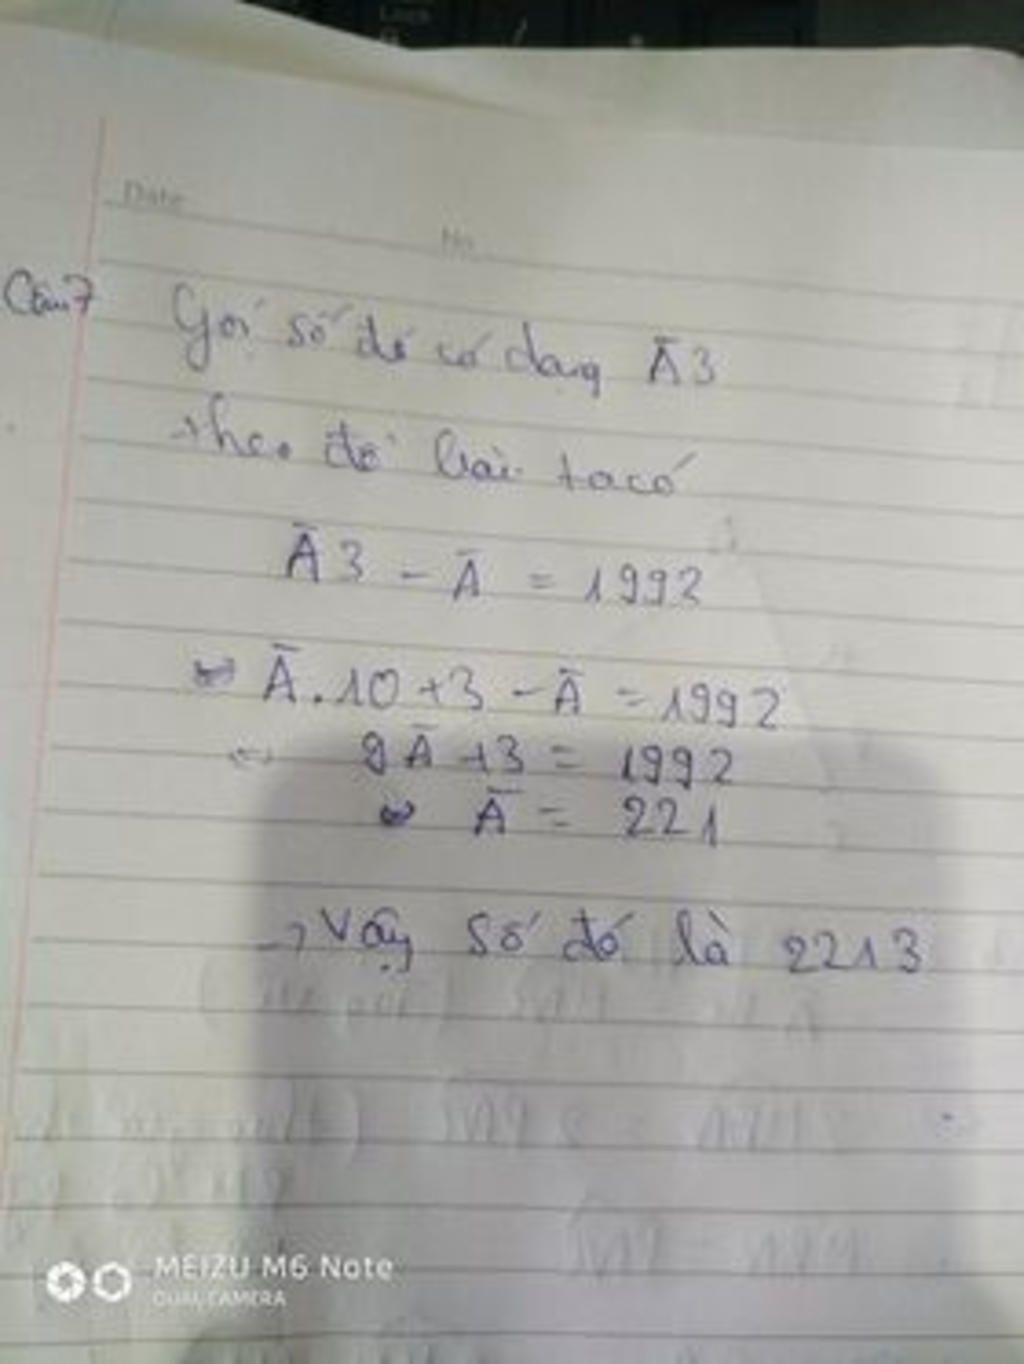 Date
No
Câu7 Gọi số đó có dạng Ā3
theo đề bài ta có
Ā3 - Ā = 1992
⇔ Ā.10 +3 - Ā = 1992
⇔ 9Ā +3 = 1992
⇔ Ā = 221
→ Vậy số đó là 2213
MEIZU M6 Note
DUAL CAMERA